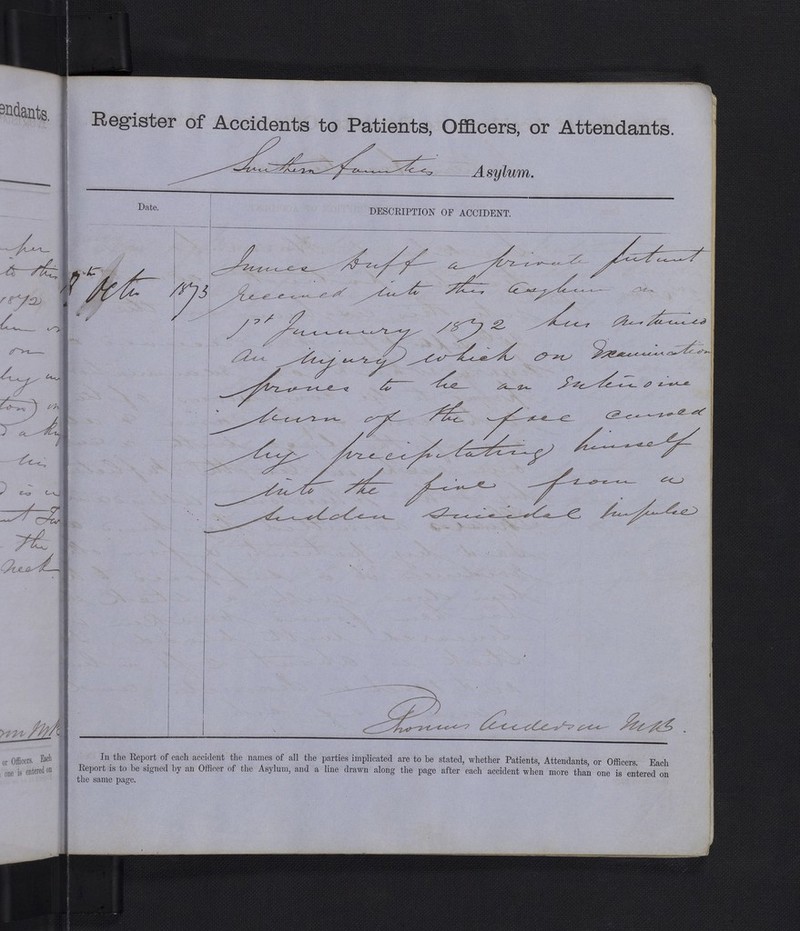 endants.
Register of Accidents to Patients, Officers, or Attendants.
Southern Counties Asylum.
Date.
DESCRIPTION OF ACCIDENT.
James Duff a private patient
Octr 1873 received into this Asylum on
1st January 1872 has sustained
an injury which on Examination
proves to be an Extensive
burn of the face caused
by precipitating himself
into the fire from a
sudden suicidal impulse
Thomas Anderson M.B.
In the Report of each accident the names of all the parties implicated are to be stated, whether Patients, Attendants, or Officers. Each
Report is to be signed by an Officer of the Asylum, and a line drawn along the page after each accident when more than one is entered on
the same page.
1872
on
the
neck
or Officers. Each
one is entered on